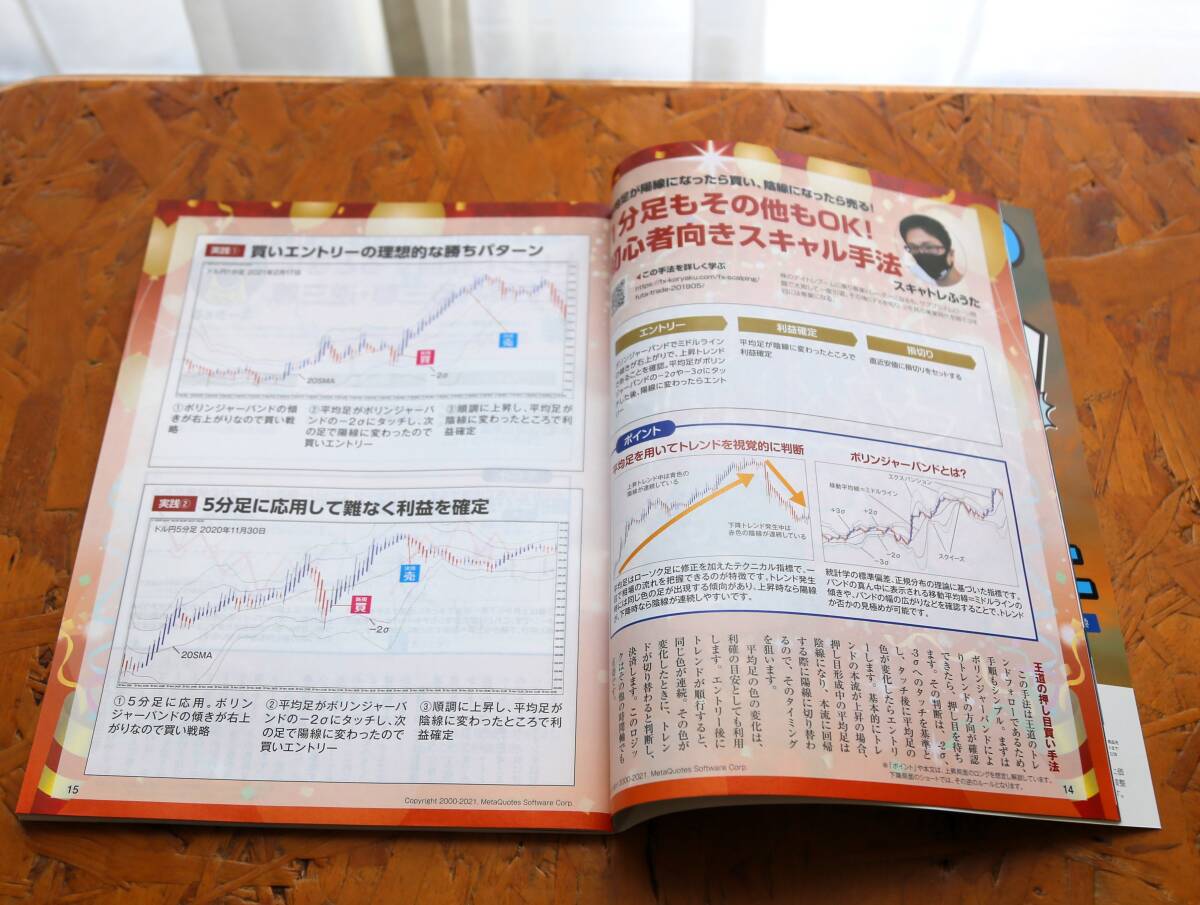 足が陽線になったら買い、陰線になったら売る!
分足もその他もOK!
心者向きスキャル手法
スキャトレふうた
◀この手法を詳しく学ぶ
https://fx-koryaku.com/fx-scalping/
futa-trade-201905/
エントリー
ボリンジャーバンドでミドルライン
傾きが右上がりで、上昇トレンド
あることを確認。平均足がボリン
ャーバンドの−2σや−3σにタッ
した後、陽線に変わったらエント
リー
利益確定
平均足が陰線に変わったところで
利益確定
損切り
直近安値に損切りをセットする
ポイント
平均足を用いてトレンドを視覚的に判断
上昇トレンド中は青色の
陽線が連続している
下降トレンド発生中は
赤色の陰線が連続している
均足はローソク足に修正を加えたテクニカル指標で、一
で相場の流れを把握できるのが特徴です。トレンド発生
には同じ色の足が出現する傾向があり、上昇時なら陽線
が、下降時なら陰線が連続しやすいです。
ボリンジャーバンドとは?
エクスパンション
移動平均線=ミドルライン
+3σ
+2σ
−2σ
−3σ
スクイーズ
統計学の標準偏差、正規分布の理論に基づいた指標です。
バンドの真ん中に表示される移動平均線=ミドルラインの
傾きや、バンドの幅の広がりなどを確認することで、トレンド
か否かの見極めが可能です。
王道の押し目買い手法
この手法は王道のトレ
ンドフォローであるため、
手順もシンプル。まずは
ボリンジャーバンドによ
りトレンドの方向が確認
できたら、押し目を待ち
ます。その判断は、−2σ、
−3σへのタッチを基準と
し、タッチ後に平均足の
色が変化したらエントリ
ーします。基本的にトレ
ンドの本流が上昇の場合、
押し目形成中の平均足は
陰線になり、本流に回帰
する際に陽線に切り替わ
るので、そのタイミング
を狙います。
平均足の色の変化は、
利確の目安としても利用
します。エントリー後に
トレンドが順行すると、
同じ色が連続。その色が
変化したときに、トレン
ドが切り替わると判断し、
決済します。このロジッ
クはその他の時間軸でも
※「ポイント」や本文は、上昇局面のロングを想定し解説しています。
下降局面のショートでは、その逆のルールとなります。
2000-2021, MetaQuotes Software Corp.
14
実践①
買いエントリーの理想的な勝ちパターン
ドル円1分足 2021年2月17日
20SMA
新規
買
−2σ
決済
売
①ボリンジャーバンドの傾
きが右上がりなので買い戦
略
②平均足がボリンジャーバ
ンドの−2σにタッチし、次
の足で陽線に変わったので
買いエントリー
③順調に上昇し、平均足が
陰線に変わったところで利
益確定
実践②
5分足に応用して難なく利益を確定
ドル円5分足 2020年11月30日
20SMA
新規
買
−2σ
決済
売
①5分足に応用。ボリン
ジャーバンドの傾きが右上
がりなので買い戦略
②平均足がボリンジャーバ
ンドの−2σにタッチし、次
の足で陽線に変わったので
買いエントリー
③順調に上昇し、平均足が
陰線に変わったところで利
益確定
15
Copyright 2000-2021, MetaQuotes Software Corp.